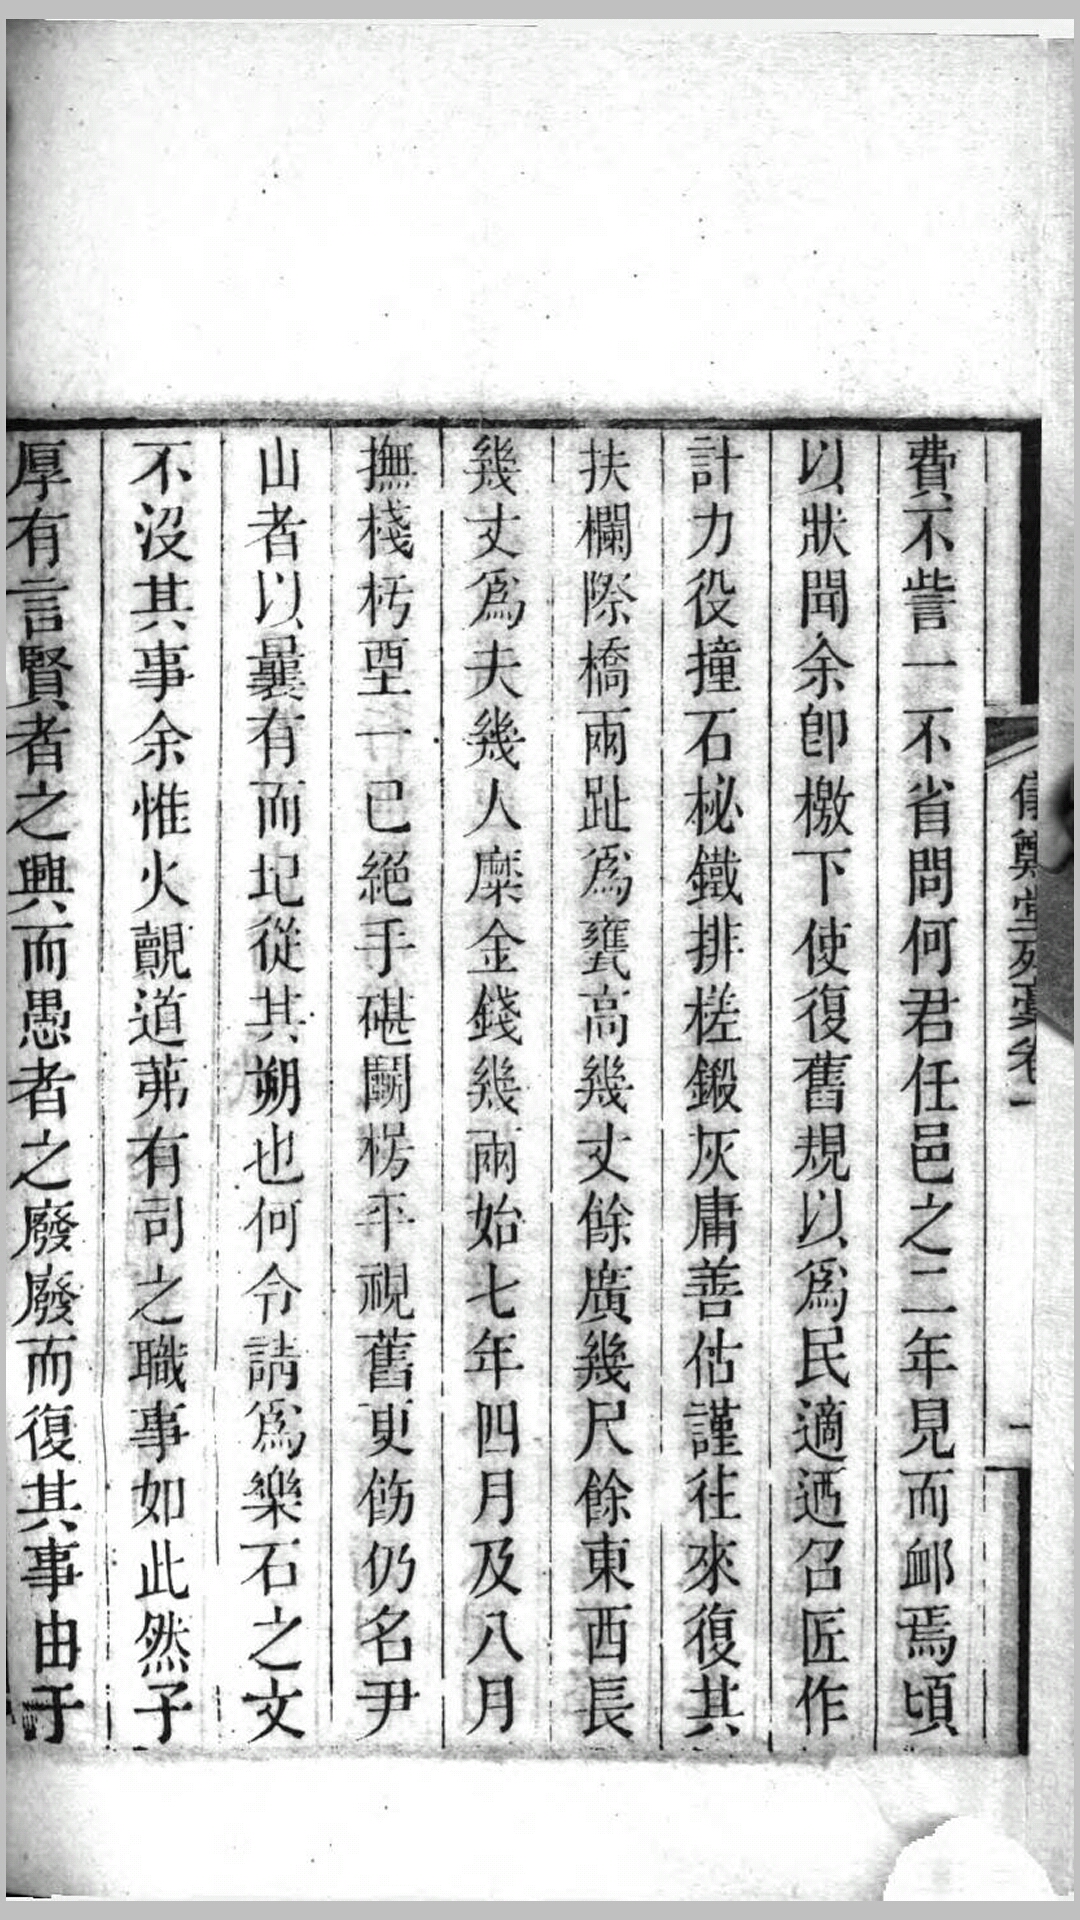 費不訾一不省問何君任邑之二年見而衈焉頃
以狀聞余卽檄下使復舊規以爲民適迺召匠作
計力役撞石柲鐵排槎鍛灰庸善估謹往來復其
扶欄際橋兩趾爲甃高幾丈餘廣幾尺餘東西長
幾丈爲夫幾人糜金錢幾兩始七年四月及八月
撫棧杇堊一已絕手碪鬭楞平視舊更飭仍名尹
山者以曩有而圮從其朔也何令請爲樂石之文
不沒其事余惟火覿道茀有司之職事如此然子
厚有言賢者之興而愚者之廢廢而復其事由于
儀鄭堂殘稾卷一
一